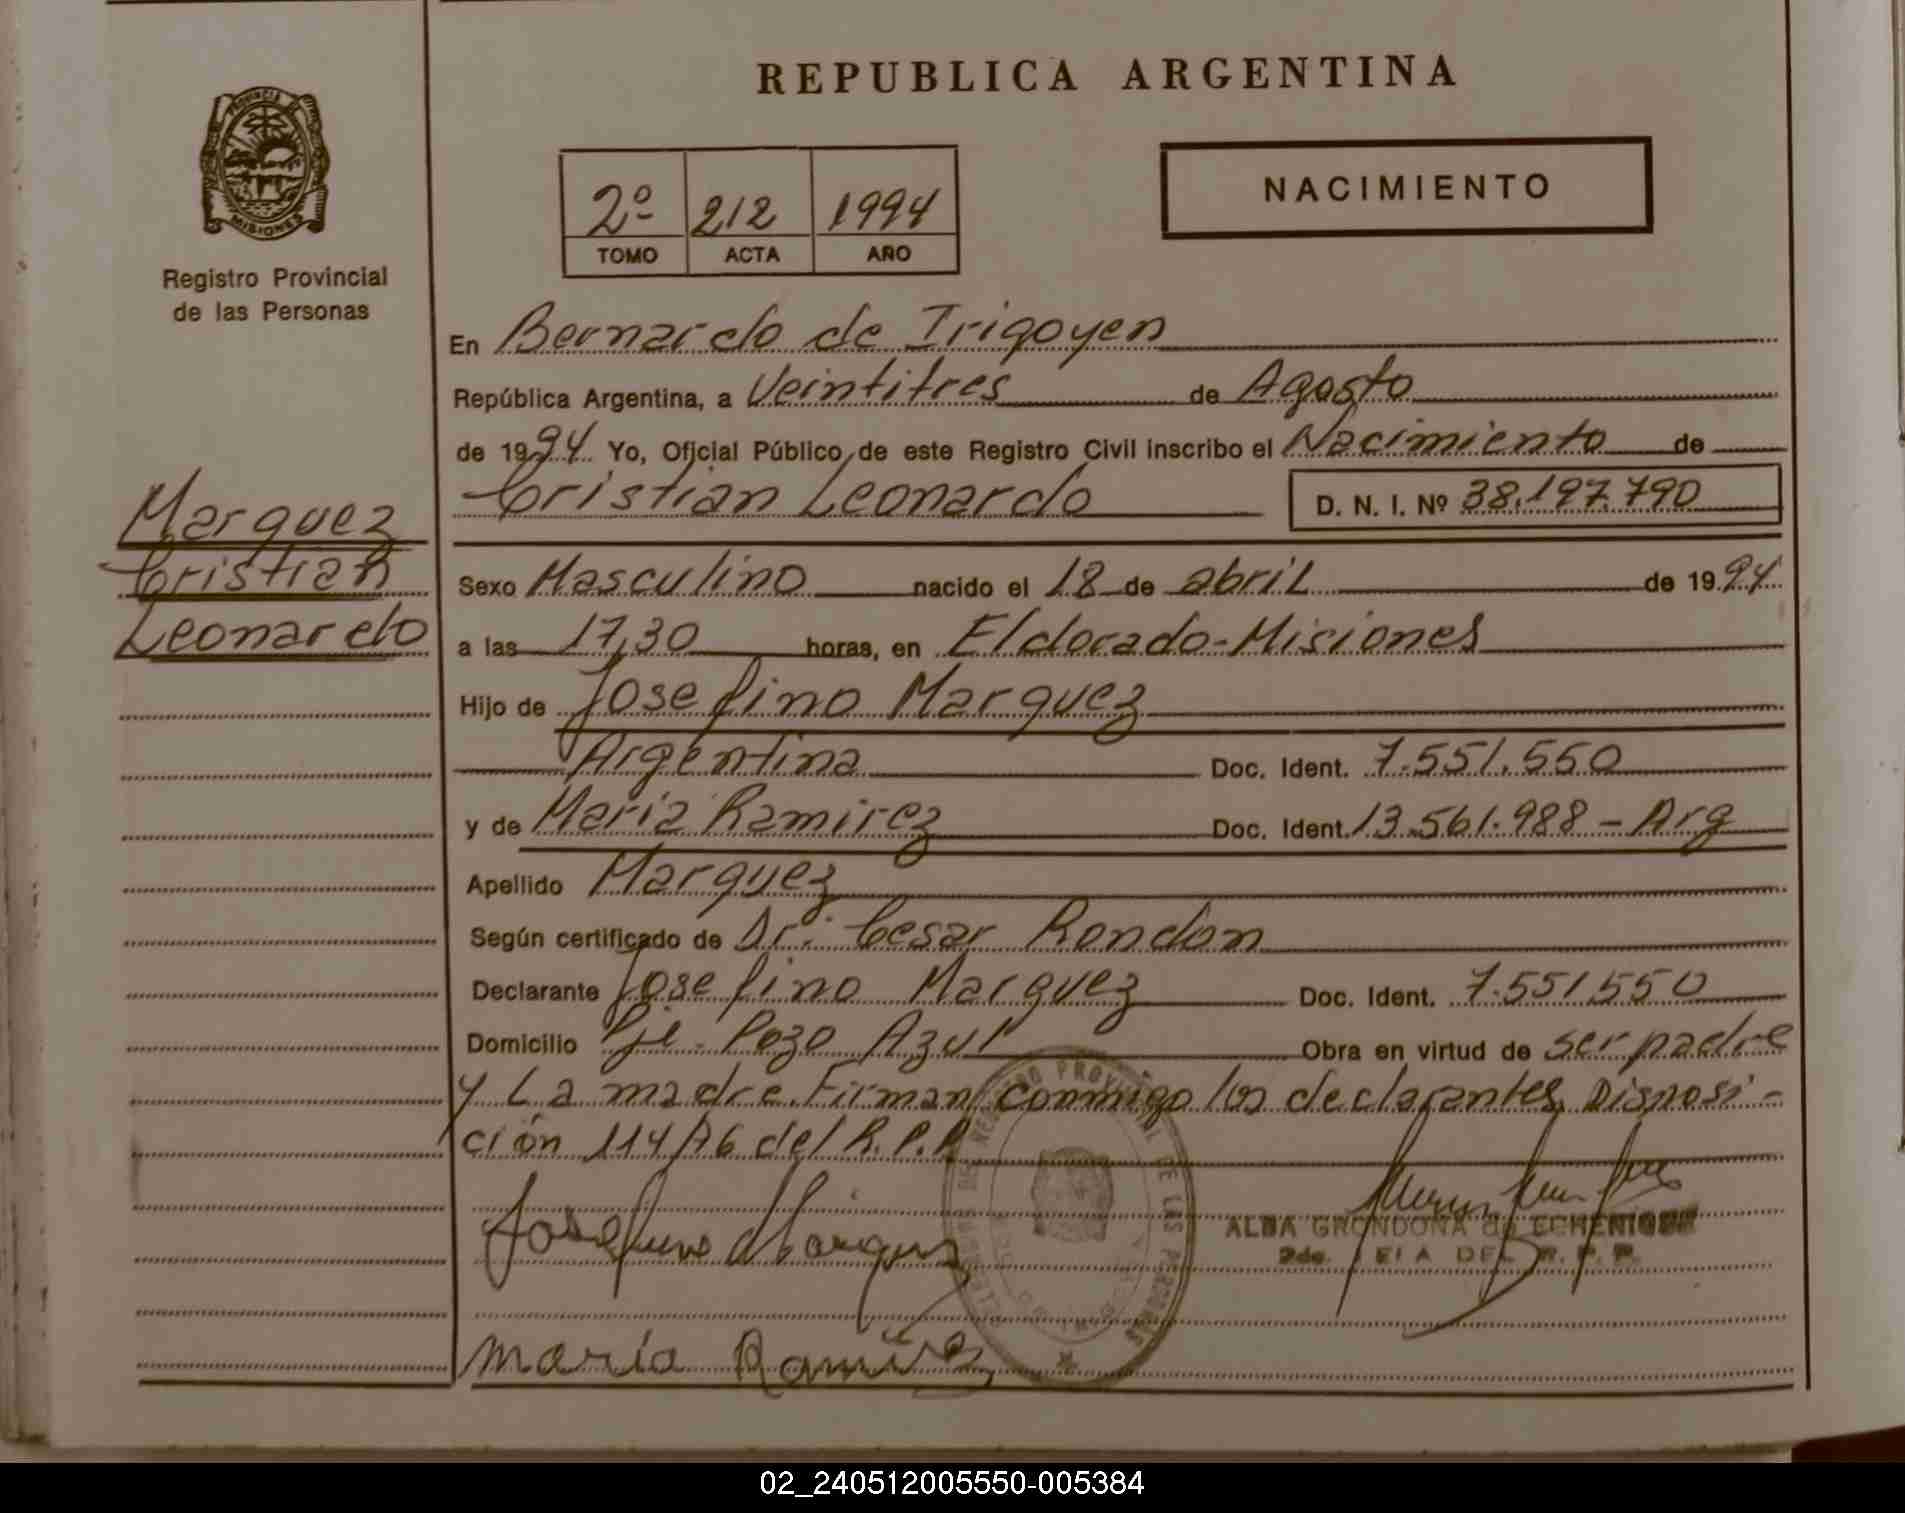 REPUBLICA ARGENTINA
PROVINCIA DE
MISIONES
Registro Provincial
de las Personas
2º 212 1994
TOMO ACTA AÑO
NACIMIENTO
Marquez
Cristian
Leonardo
En Bernardo de Irigoyen
República Argentina, a Veintitres de Agosto
de 1994 Yo, Oficial Público de este Registro Civil inscribo el Nacimiento de
Cristian Leonardo D. N. I. Nº 38.197.790
Sexo Masculino nacido el 18 de abril de 1994
a las 17,30 horas, en Eldorado-Misiones
Hijo de Josefino Marquez
Argentina Doc. Ident. 7.551.550
y de María Ramirez Doc. Ident. 13.561.988 - Arg
Apellido Marquez
Según certificado de Dr. Cesar Rondon
Declarante Josefino Marquez Doc. Ident. 7.551550
Domicilio Pje. Pozo Azul Obra en virtud de ser padre
y La madre. Firman conmigo los declarantes Disposi-
ción 114/76 del R.P.P
Josefino Marquez
ALBA GRONDONA de ECHENIQUE
DEL R. P. P.
María Ramirez
02_240512005550-005384